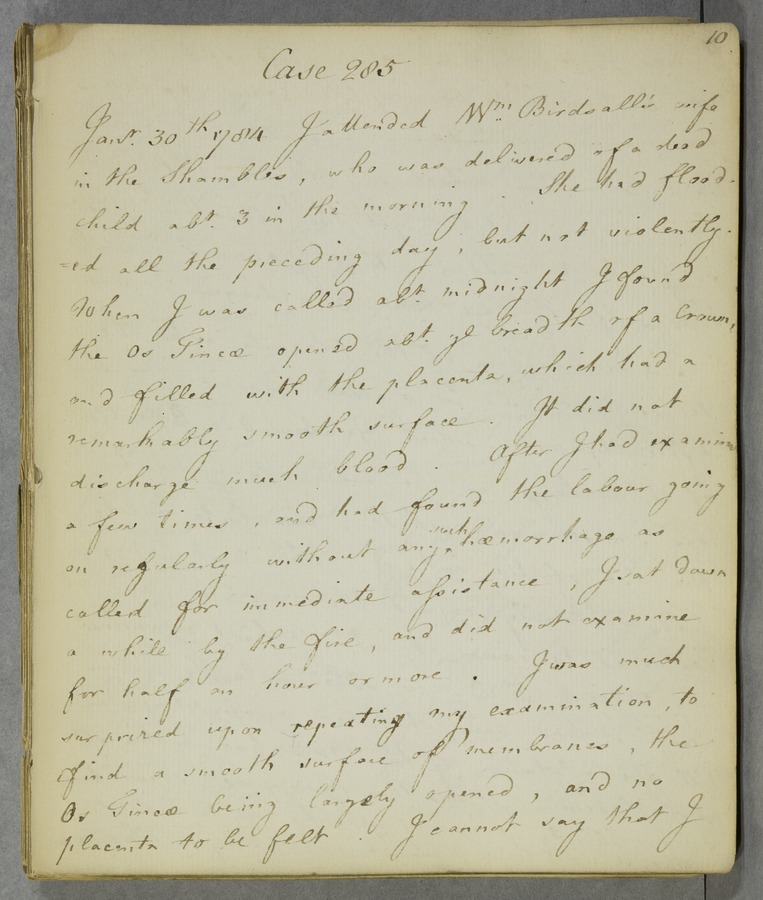 10
Case 285
Jany. 30th 1784 I attended Wm. Birdsall's wife
in the Shambles, who was delivered of a dead
child abt. 3 in the morning. She had flood-
=ed all the preceding day, but not violently.
When I was called abt. midnight I found
the Os Tincæ opened abt. ye breadth of a Crown,
and filled with the placenta, which had a
remarkably smooth surface. It did not
discharge much blood. After I had examin
a few times, and had found the labour going
on regularly without any such hæmorrhage as
called for immediate assistance, I sat down
a while by the fire, and did not examine
for half an hour or more. I was much
surprized upon repeating my examination, to
find a smooth surface of membranes, the
Os Tincæ being largely opened, and no
placenta to be felt. I cannot say that I